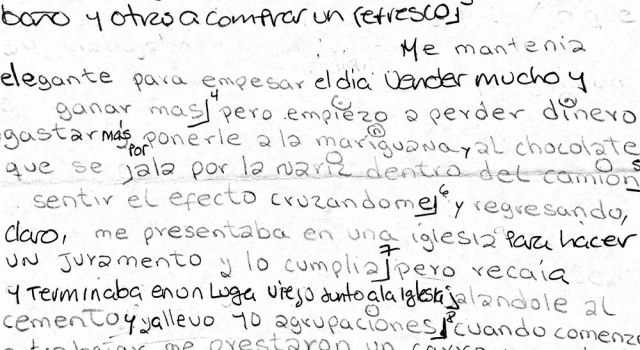 baño y otros a comprar un refresco
Me mantenia
elegante para empesar el dia Vender mucho y
ganar mas 4 pero empiezo a perder dinero
gastar más ponerle a la mariguana y al chocolate
que se jala por la nariz dentro del camión 5
por
sentir el efecto cruzandome 6 y regresando,
claro, me presentaba en una iglesia para hacer
un juramento y lo cumplia 7 pero recaia
y Terminaba en un Luga viejo Junto a la Iglesia jalandole al
cemento y ya llevo 10 agrupaciones 8 cuando comenz
me prestaron un